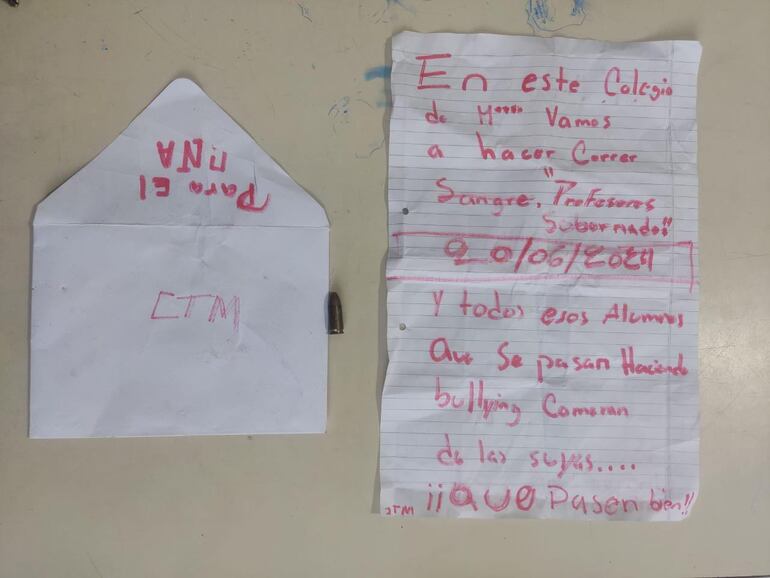 Para El
UNA
CTM
En este Colegio
de M***** Vamos
a hacer Correr
Sangre, "Profesores
Sobornados"
20/06/2024
Y todos esos Alumnos
que se pasan Haciendo
bullying Comeran
de las suyas....
¡¡QUE Pasen bien!!
CTM